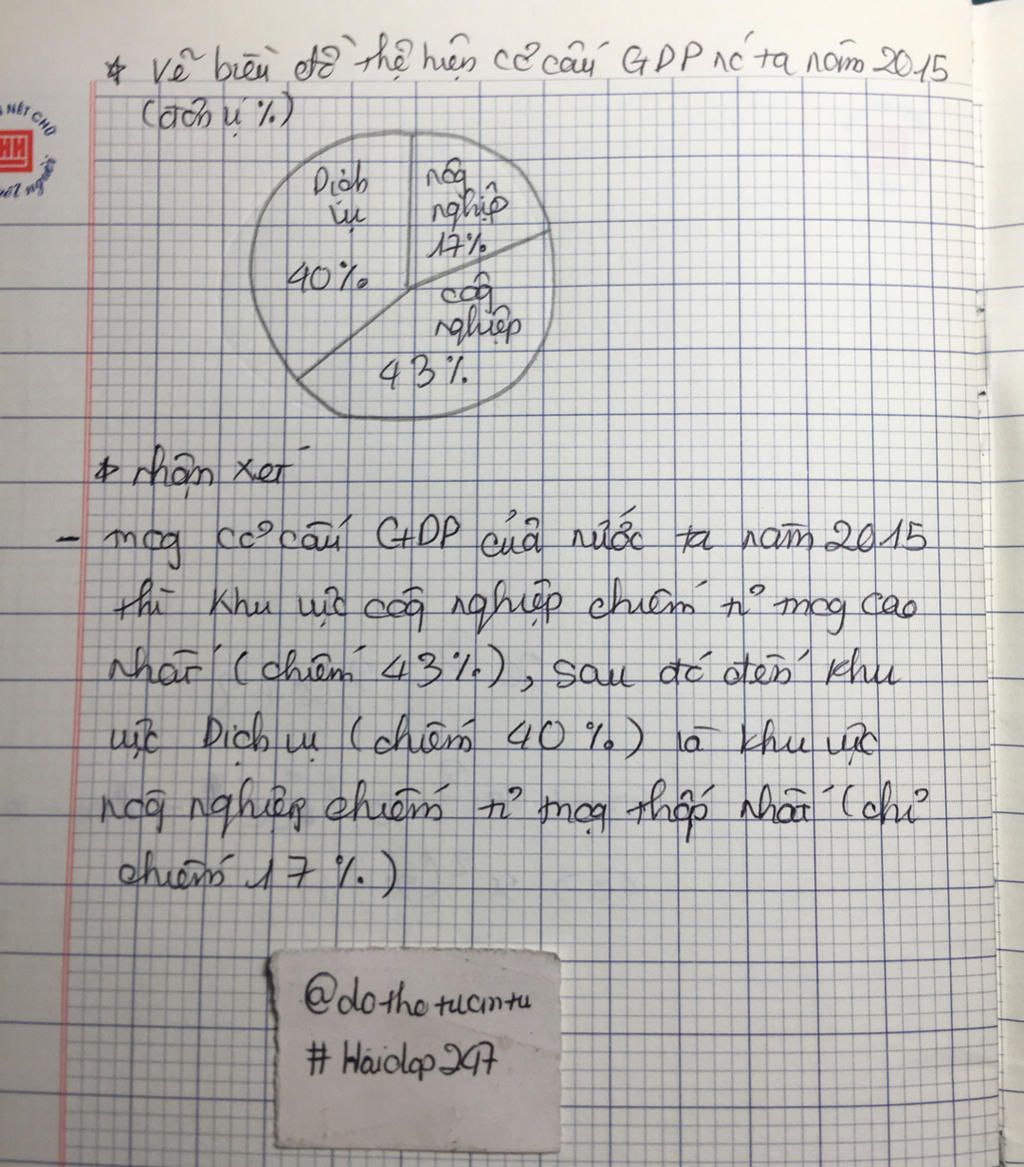 * Vẽ biểu đồ thể hiện cơ cấu GDP nc ta năm 2015
(đơn vị %)
NÉT CHỮ
HH
nết người
Dịch
vụ
40%
nôg
nghiệp
17%
côg
nghiệp
43%
* nhận xét
- trog cơ cấu GDP của nước ta năm 2015
thì khu vực côg nghiệp chiếm tỉ trog cao
nhất (chiếm 43%), sau đó đến khu
vực Dịch vụ (chiếm 40%) là khu vực
nôg nghiệp chiếm tỉ trog thấp nhất (chỉ
chiếm 17%)
@dothetucintu
# Hoidap247